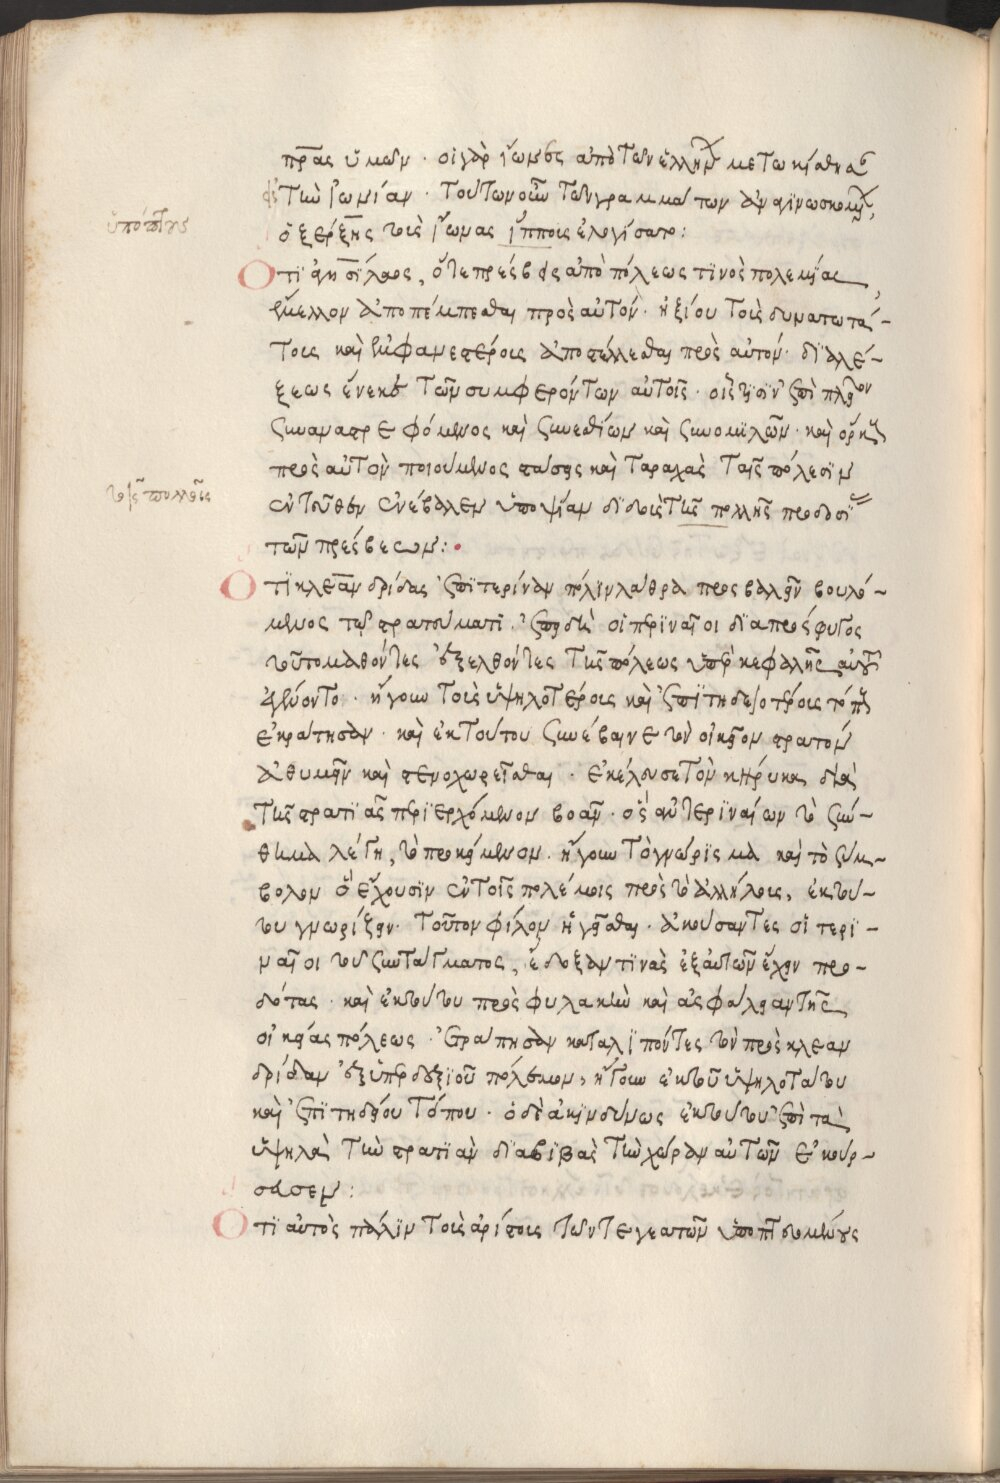 πρας ὑμῶν · οἱ γὰρ ἴωνες ἀπὸ τῶν ἑλλήνων μετωκίσθησαν
εἰς τὴν ἰωνίαν · τούτων οὖν τῶν γραμμάτων ἀναγινωσκομένων,
ὑπόπτους
ὁ ξέρξης τοὺς ἴωνας ὑππους ἐλογίσατο :
Ὅτι ἀγησίλαος, ὅτε πρέσβεις ἀπὸ πόλεως τινὸς πολεμίας
ἔμελλον ἀποπέμπεσθαι πρὸς αὐτόν · ἠξίου τοὺς δυνατωτά-
τους καὶ ἐμφανεστέρους ἀποστέλλεσθαι πρὸς αὐτόν · διαλέ-
ξεως ἕνεκα τῶν συμφερόντων αὐτοῖς · οἷς ἐπὶ πλεῖον
συναναστρεφόμενος καὶ συνεσθίων καὶ συνομιλῶν · καὶ
πρὸς αὐτὸν ποιούμενος στάσεις καὶ ταραχὰς ταῖς πόλεσιν
τοῖς πολλοῖς
ἐντεῦθεν ἐνέβαλεν ὑποψίαν διὰ τῆς πολλῆς προδοσί
τῶν πρέσβεων :
Ὅτι κλεανδρίδας ἐπὶ τερίναν πόλιν λάθρα προσβαλεῖν βουλό-
μενος τῷ στρατεύματι · ἐπειδὴ οἱ τεριναῖοι διὰ προσφυγος
τοῦτο μαθόντες ἐξελθόντες τῆς πόλεως ὑπὲρ κεφαλῆς αὐτοῦ
ἐγένοντο · ἤγουν τοὺς ὑψηλοτέρους καὶ ἐπιτηδειοτέρους τόπους
ἐκράτησαν · καὶ ἐκ τούτου συνέβαινε τὸν οἰκεῖον στρατὸν
ἀθυμεῖν καὶ στενοχωρεῖσθαι · ἐκέλευσε τὸν κήρυκα διὰ
τῆς στρατιᾶς περιερχόμενον βοᾶν · ὃς ἂν τεριναίων τὸ σύν-
θημα λέγῃ, τὸ προκείμενον · ἤγουν τὸ γνώρισμα καὶ τὸ σύμ-
βολον ὃ ἔχουσιν ἐν τοῖς πολέμοις πρὸς τὸ ἀλλήλους, ἐκ τού-
του γνωρίζειν · τοῦτον φίλον ἡγεῖσθαι · ἀκούσαντες οἱ τερι-
ναῖοι τοῦ συντάγματος, ἔδοξαν τινὰς ἐξ αὐτῶν ἔχειν προ-
δότας · καὶ ἐκ τούτου πρὸς φυλακὴν καὶ ἀσφάλειαν τῆς
οἰκείας πόλεως · ἐτράπησαν καταλιπόντες τὸν πρὸς κλεαν
δρίδαν ἐξ ὑπερδεξίου πόλεμον, ἤγουν ἐκ τοῦ ὑψηλοτάτου
καὶ ἐπιτηδείου τόπου · ὁ δὲ ἀκινδύνως ἐκ τούτου ἐπὶ τὰ
ὑψηλὰ τὴν στρατιὰν διαβιβὰς τὴν χώραν αὐτῶν ἐκούρ-
σευσεν :
Ὅτι αὐτὸς πάλιν τοὺς ἀρίστους τῶν τεγεατῶν ὑποπτευομένους